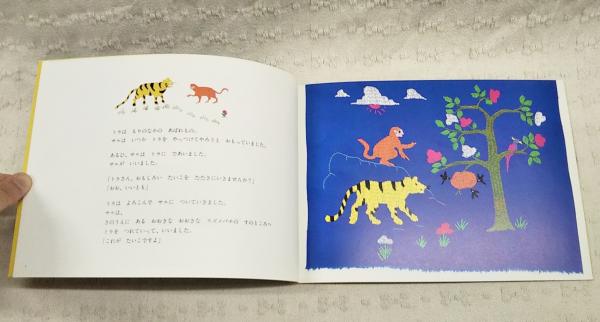 トラは もりのなかの あばれもの。
サルは いつか トラを やっつけてやろうと おもっていました。
あるひ、サルは トラに であいました。
サルが いいました。
「トラさん、おもしろい たいこを たたきにいきませんか？」
「おお、いいとも」
トラは よろこんで サルに ついていきました。
サルは、
きのうえに ある おおきな おおきな スズメバチの すのところへ
トラを つれていって、いいました。
「これが たいこですよ」